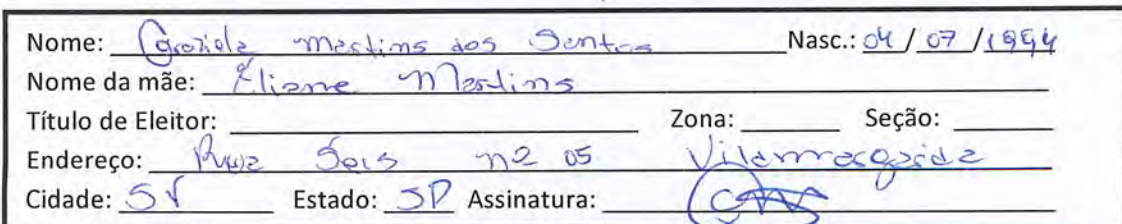 Nome: Graziela Martins dos Santos Nasc.: 04/07/1994
Nome da mãe: Eliane Martins
Título de Eleitor: Zona: Seção:
Endereço: Rua Seis nº 05 Vila margarida
Cidade: SV Estado: SP Assinatura: